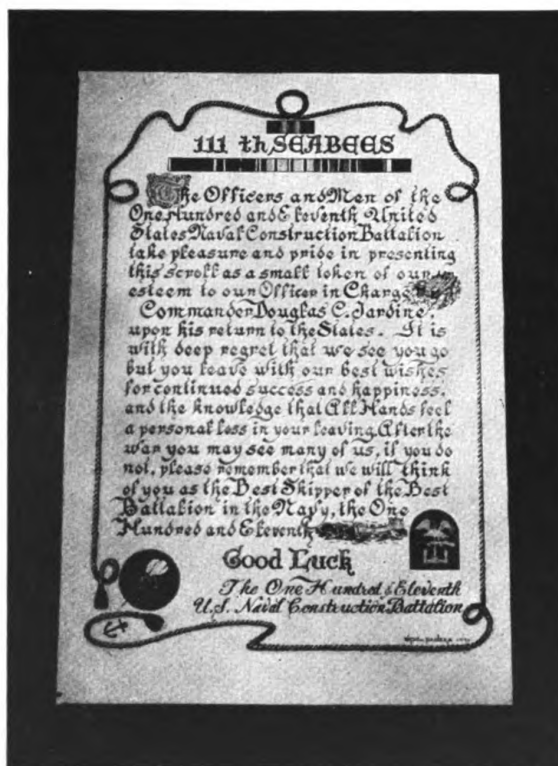 111th SEABEES
The Officers and Men of the
One Hundred and Eleventh United
States Naval Construction Battalion
take pleasure and pride in presenting
this scroll as a small token of our
esteem to our Officer in Charge
Commander Douglas C. Jardine,
upon his return to the States. It is
with deep regret that we see you go
but you leave with our best wishes
for continued success and happiness,
and the knowledge that All Hands feel
a personal loss in your leaving. After the
war you may see many of us, if you do
not, please remember that we will think
of you as the Best Skipper of the Best
Battalion in the Navy, the One
Hundred and Eleventh
Good Luck
The One Hundred & Eleventh
U.S. Naval Construction Battalion